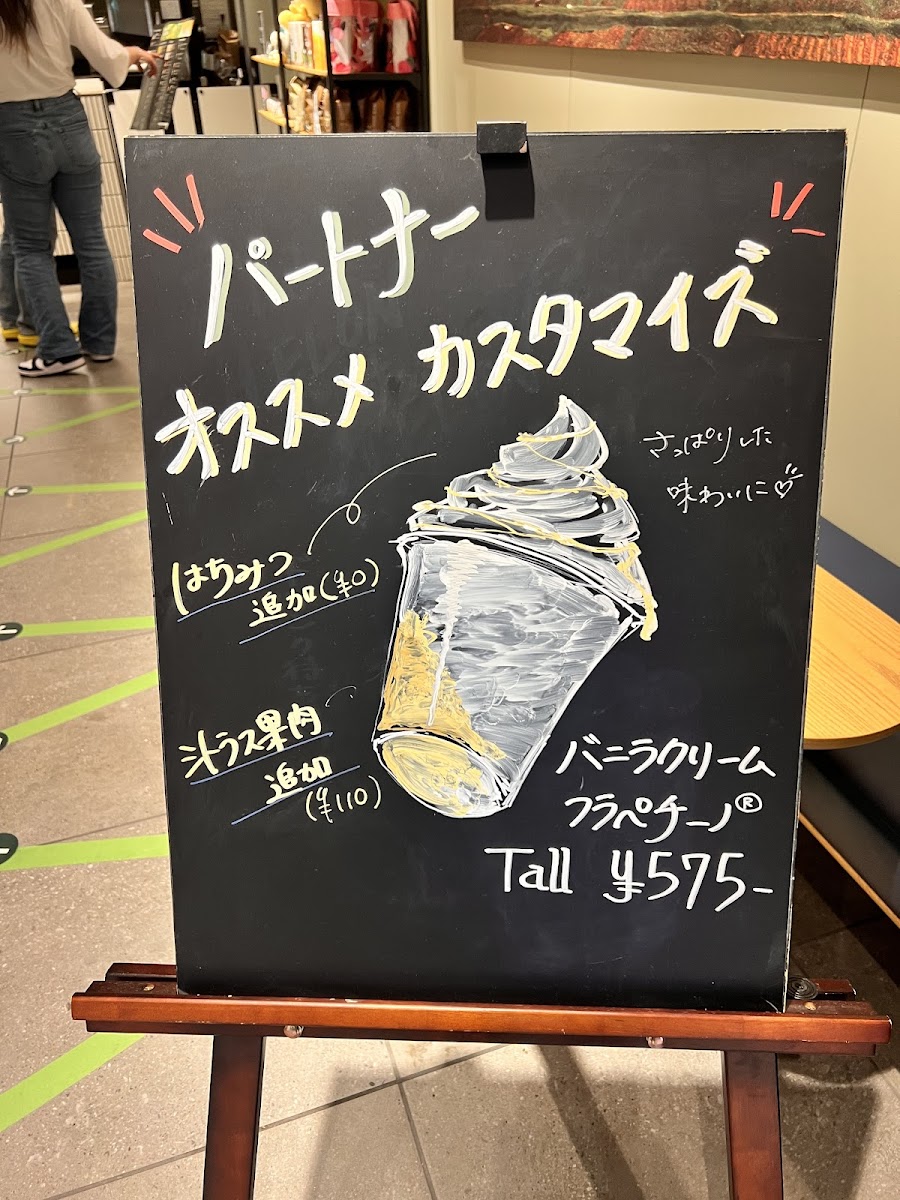 パートナー
オススメ カスタマイズ
さっぱりした
味わいに♡
はちみつ
追加(¥0)
シトラス果肉
追加
(¥110)
バニラクリーム
フラペチーノ®
Tall ¥575-